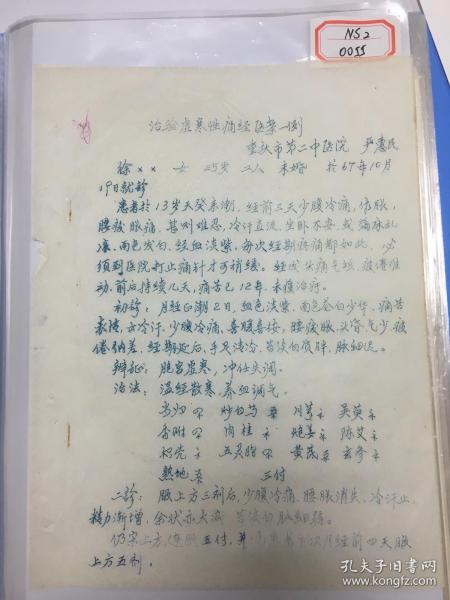 NS2
0055
治验虚寒性痛经医案一例
重庆市第二中医院 严惠民
徐×× 女 25岁 工人 未婚 于67年10月
19日就诊
患者于13岁天癸来潮,经前三天少腹冷痛,作胀,
腰致胀痛,甚则难忍,冷汗直流,坐卧不安,或痛麻乱
凛,面色发白,经血淡紫,每次经期疼痛都如此,必
须到医院打止痛针才可稍缓。经后头痛气短,疲倦难
动,前后持续几天,痛苦已12年,未獲治疗。
初诊:月经正潮2日,血色淡紫,面色苍白少华,痛苦
表情,云冷汗,少腹冷痛,喜暖喜按,腰痠胀,头昏气少,疲
倦纳差,经期延后,手足清冷,苔淡白质胖,脉细迟。
辨证:胞宫虚寒,冲任失调。
治法:温经散寒,养血调气。
当归 炒白芍 川芎 吴萸
香附 肉桂 炮姜 陈艾
枳壳 五灵脂 黄芪 玄参
熟地 三付
二诊:服上方三剂后,少腹冷痛、腰胀消失,冷汗止,
精力渐增,余状亦大减 苔淡白脉细弱。
仍宗上方,连服五付,并 下次月经前四天服
上方五剂。
孔夫子旧书网